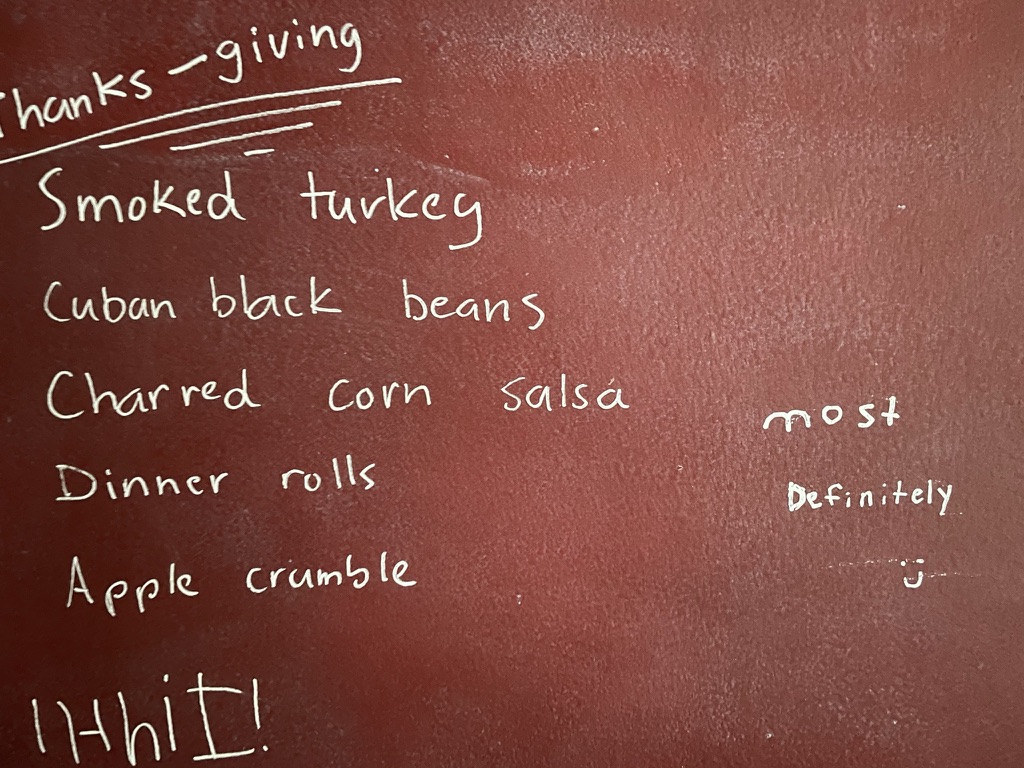 Thanks-giving
Smoked turkey
Cuban black beans
Charred corn salsa
most
Dinner rolls
Definitely
Apple crumble